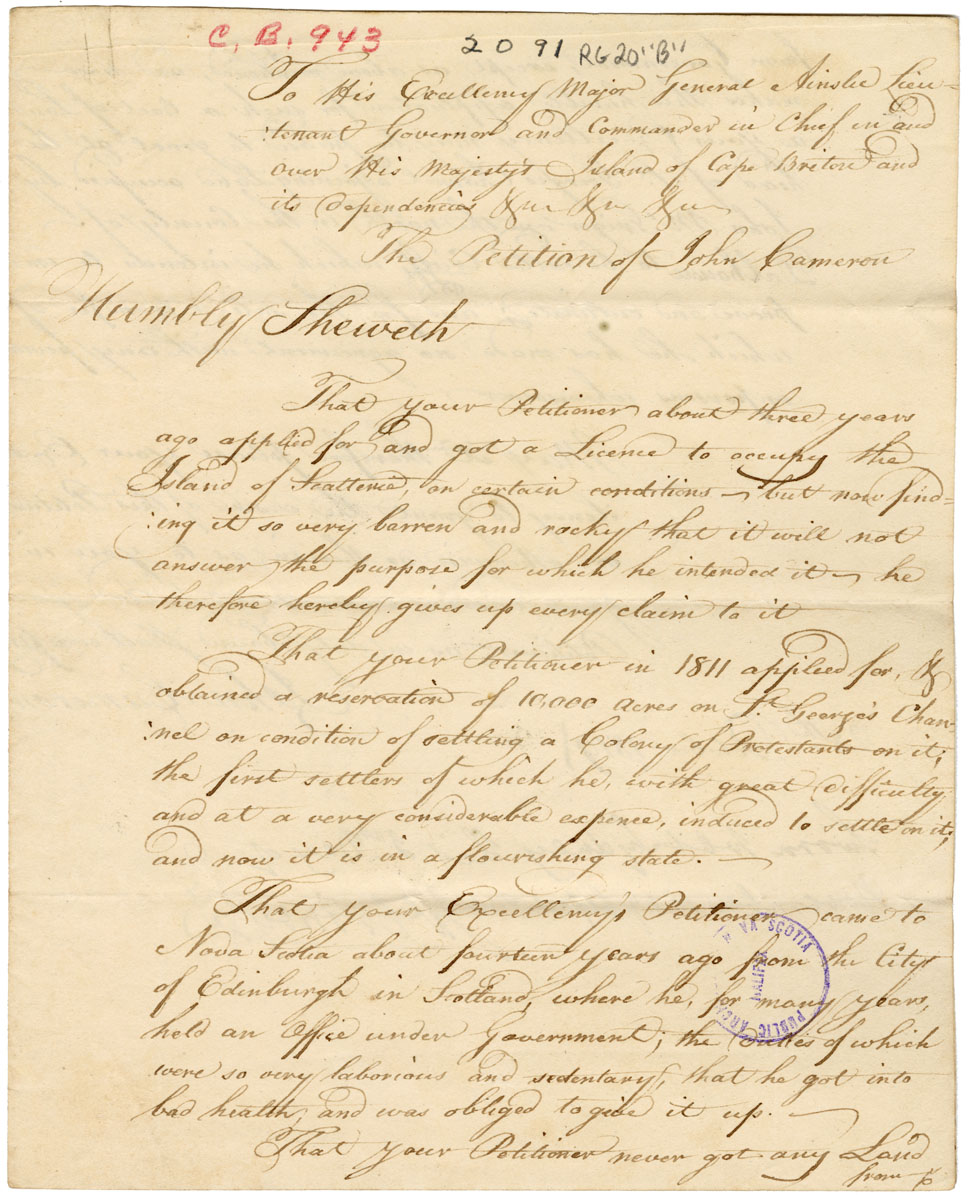 C. B. 943
2091 RG20 "B"
To His Excellency Major General Ainslie Lieu-
:tenant Governor and Commander in Chief in and
over His Majesty's Island of Cape Briton and
its dependencies &c &c &c
The Petition of John Cameron
Humbly Sheweth
That your Petitioner about three years
ago applied for and got a Licence to occupy the
Island of Scatterie, on certain conditions – but now find=
:ing it so very barren and rocky that it will not
answer the purpose for which he intended it – he
therefore hereby gives up every claim to it
That your Petitioner in 1811 applied for, &
obtained a reservation of 10,000 acres on St. George's Chan-
:nel on condition of settling a Colony of Protestants on it;
the first settlers of which he, with great difficulty
and at a very considerable expence, induced to settle on it;
and now it is in a flourishing state. –
That your Excellency's Petitioner came to
Nova Scotia about fourteen years ago from the City
of Edinburgh in Scotland, where he, for many years,
held an Office under Government; the Duties of which
were so very laborious and sedentary, that he got into
bad health, and was obliged to give it up. –
That your Petitioner never got any Land
from
PUBLIC ARCH VA SCOTIA
HALIFAX